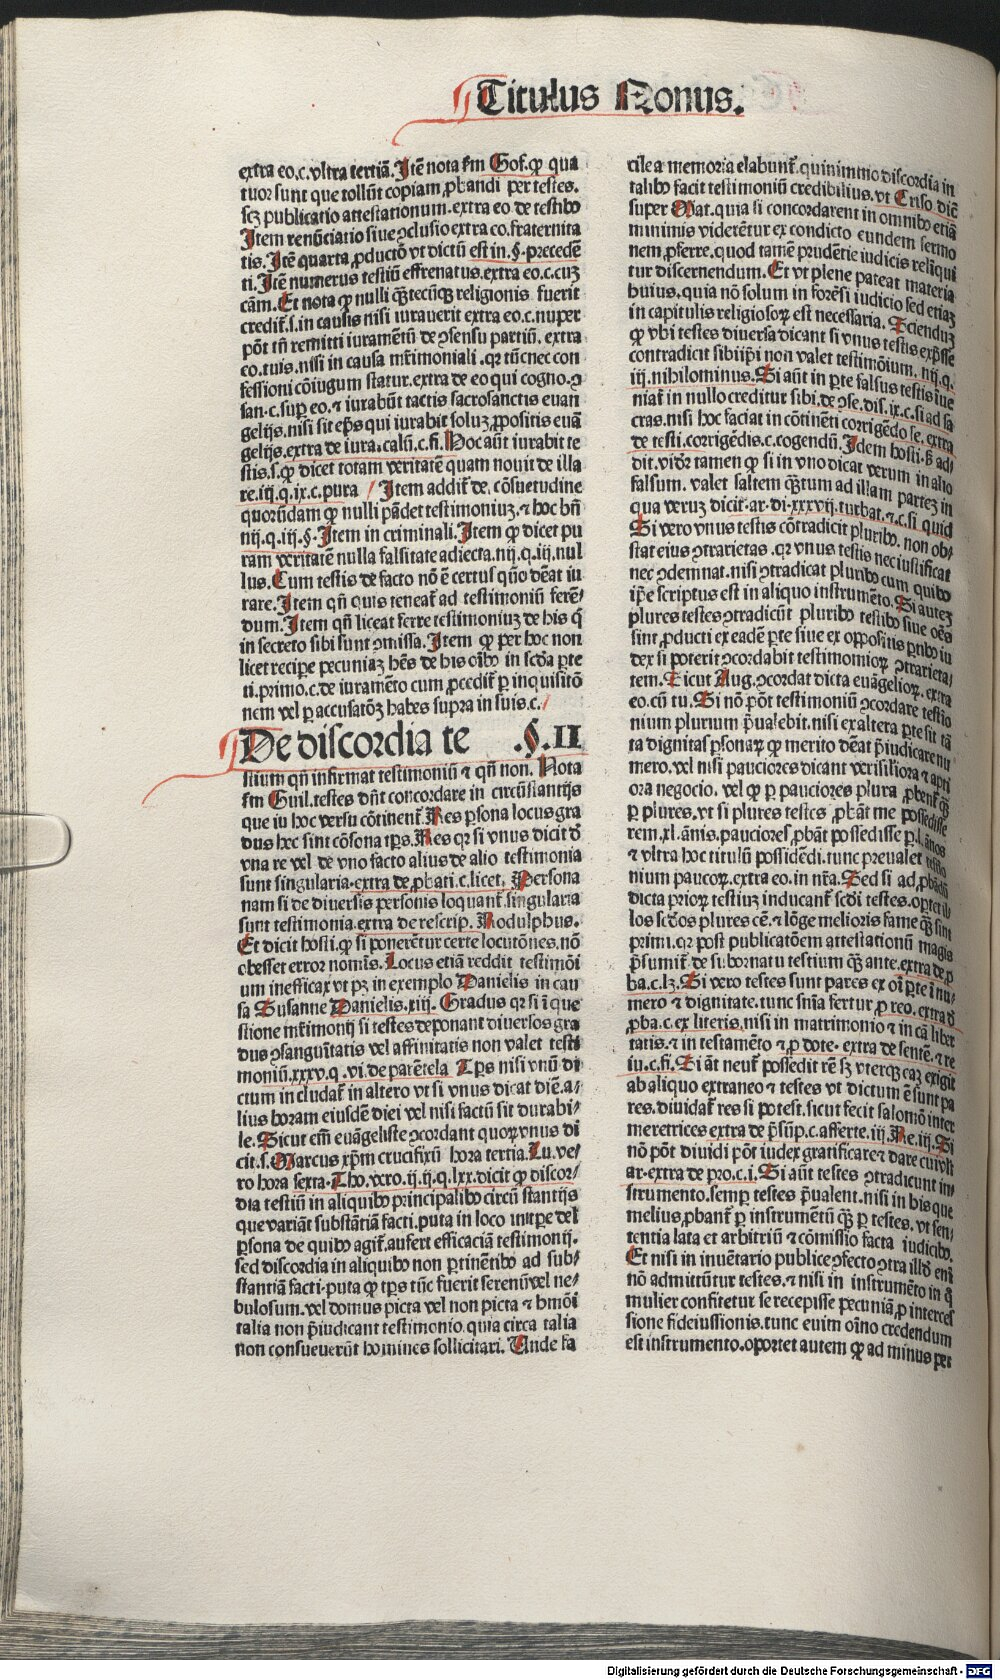 Titulus Nonus.
extra eo.c.vltra tertiā. Itē nota ẜm Gof. ꝙ qua
tuor sunt que tollūt copiam ꝓbandi per testes.
scꝫ publicatio attestationum. extra eo de testibꝰ
Item renūciatio siue ↄclusio extra eo. fraternita
tis. Itē quarta ꝓductō vt dictū est in. §. precedē
ti. Itē numerus testiū effrenatus. extra eo. c. cuꝫ
cām. Et nota ꝙ nulli qͣ̄tecūqꝫ religionis fuerit
credit᷑. s. in causis nisi iurauerit extra eo. c. nuper
pōt tn̄ remitti iuramētū de ↄsensu partiū. extra
eo. tuis. nisi in causa mr̄imoniali. qꝛ tūc nec con
fessioni cōiugum statur. extra de eo qui cogno. ↄ
san. c. sup eo. ⁊ iurabūt tactis sacrosanctis euan
gelijs. nisi sit ep̄s qui iurabit soluꝫ ꝓpositis euā
gelijs. extra de iura. calū. c. fi. Hoc aūt iurabit te
stis. s. ꝙ dicet totam veritatē quam nouit de illa
re. iij. q. ix. c. pura Item addit᷑ de cōsuetudine
quorūdam ꝙ nulli pādet testimoniuꝫ. ⁊ hoc hn̄
iiij. q. iij. §. Item in criminali. Item ꝙ dicet pu
ram veritatē nulla falsitate adiecta. iiij. q. iij. nul
lus. Cum testis de facto nō ē certus qūo dēat iu
rare. Item qn̄ quis teneat᷑ ad testimoniū ferē/
dum. Item qn̄ liceat ferre testimoniuꝫ de his q̄
in secreto sibi sunt ↄmissa. Item ꝙ per hoc non
licet recipe pecuniaꝫ hēs de his oībꝰ in scd̄a ꝑte
ti. primo. c. de iuramēto cum ꝓcedit᷑ ꝑ inquisitō
nem vel ꝑ accusatōꝫ habes supra in suis. c.
De discordia te .§. II
stium qn̄ infirmat testimoniū ⁊ qn̄ non. Nota
ẜm Guil. testes dn̄t concordare in circūstantijs
que iu hoc versu cōtinent᷑. Res ꝑsona locus gra
dus hec sint cōsona tꝑs. Res qꝛ si vnus dicit d̓
vna re vel de vno facto alius de alio testimonia
sunt singularia. extra de ꝓbati. c. licet. Persona
nam si de diuersis personis loquant᷑. singularia
sunt testimonia. extra de rescrip. Rodulphus.
Et dicit hosti. ꝙ si ponerētur certe locutōnes. nō
obesset error nomīs. Locus etiā reddit testimōi
um inefficax vt pꝫ in exemplo Danielis in cau
sa Susanne Danielis. xiij. Gradus qꝛ si ī que
stione mr̄imonij si testes deponant diuersos gra
dus ↄsanguītatis vel affinitatis non valet testi
moniū. xxxv. q. vi. de parētela Tꝑs nisi vnū di
ctum includat᷑ in altero vt si vnus dicat diē. a/
lius horam eiusdē diei vel nisi factū sit durabi/
le. Sicut em̄ euāgeliste ↄcordant quoꝝ vnus di
cit. s. Marcus xp̄m crucifixū hora tertia. Lu. ve/
ro hora sexta. Tho. vero. ij. ij. q. lxx. dicit ꝙ discor/
dia testiū in aliquibꝰ principalibꝰ circū stantijs
que variāt substātiā facti. puta in loco in tꝑe vel
ꝑsona de quibꝰ agit᷑. aufert efficaciā testimonij.
sed discordia in aliquibꝰ non ꝑtinētibꝰ ad sub/
stantiā facti. puta ꝙ tꝑs tūc fuerit serenū vel ne/
bulosum. vel domus picta vel non picta ⁊ hmōi
talia non p̄iudicant testimonio. quia circa talia
non consueuerūt homines sollicitari. Unde fa
cile a memoria elabunt᷑. quinimmo discordia in
talibꝰ facit testimoniū credibilius. vt Criso. dic̄
super Mat. quia si concordarent in omnibꝰ etiā
minimis viderētur ex condicto eundem sermo
nem ꝓferre. quod tamē prudētie iudicis reliqui
tur discernendum. Et vt plene pateat materia
huius. quia nō solum in forēsi iudicio sed etiaꝫ
in capitulis religiosoꝝ est necessaria. Scienduꝫ
ꝙ vbi testes diuersa dicant si vnus testis exp̄sse
contradicit sibiip̄i non valet testimōium. iiij. q.
iij. nihilominus. Si aūt in ꝑte falsus testis iue
niat᷑ in nullo creditur sibi. de ↄse. dis. ix. c. si ad sa
cras. nisi hoc faciat in cōtinēti corrigēdo se. extra
de testi. corrigēdis. c. cogendū. Idem hosti. ẜ ad/
dit. vid̓r tamen ꝙ si in vno dicat verum in alio
falsum. valet saltem qͣ̄tum ad illam partez in
qua veruꝫ dicit᷑. ar. di. xxxvij. turbat. ⁊. c. si quid
Si vero vnus testis cōtradicit pluribꝰ. non ob/
stat eius ↄtrarietas. qꝛ vnus testis nec iustificat
nec ↄdemnat. nisi ↄtradicat pluribꝰ cum quibꝰ
ip̄e scriptus est in aliquo instrumēto. Si autez
plures testes ↄtradicūt pluribꝰ testibꝰ siue oēs
sint ꝓducti ex eadē ꝑte siue ex oppositis ꝑtibꝰ iu
dex si poterit ↄcordabit testimonioꝝ ↄtrarieta/
tem. Sicut Aug. ↄcordat dicta euāgelioꝝ. extra
eo. cū tu. Si nō pōt testimoniū ↄcordare testīo
nium plurium p̄ualebit. nisi ex altera ꝑte sit tā
ta dignitas ꝑsonaꝝ ꝙ merito dēat p̄iudicare nu
mero. vel nisi pauciores dicant verisiliora ⁊ apti
ora negocio. vel ꝙ ꝑ pauciores plura ꝓbent᷑ qͣ̄
ꝑ plures. vt si plures testes ꝓbāt me possedisse
rem. xl. ānis. pauciores ꝓbāt possedisse ꝑ. l. ānos
⁊ vltra hoc titulū possidēdi. tunc preualet testīo
nium paucoꝝ. extra eo. in nr̄a. Sed si ad ꝓbādū
dicta prioꝝ testiuꝫ inducant᷑ scd̄i testes. optet il/
los scd̓os plures cē. ⁊ lōge melioris fame qͣ̄ sint
primi. qꝛ post publicatōem attestationū magis
p̄sumit᷑ de subornatu testium qͣ̄ ante. extra de ꝓ
ba. c. lꝫ. Si vero testes sunt pares ex oī ꝑte ī nu/
mero ⁊ dignitate. tunc sn̄ia fertur ꝓ reo. extra d̓
ꝓba. c. ex literis. nisi in matrimonio ⁊ in cā liber
tatis. ⁊ in testamēto ⁊ ꝓ dote. extra de sentē. ⁊ re
iu. c. fi. Si āt neut᷑ possedit rē sꝫ vterqꝫ eaꝫ exigit
ab aliquo extraneo ⁊ testes vt dictum ē sunt pa
res. diuidat᷑ res si potest. sicut fecit salomō inter
meretrices extra de p̄sūp. c. afferte. iij. Re. iij. Si
nō pōt diuidi pōt iudex gratificare ⁊ dare cui vlt
ar. extra de pro. c. i. Si aūt testes ↄtradicunt in/
strumento. semꝑ testes p̄ualent. nisi in his que
melius ꝓbant᷑ ꝑ instrumētū qͣ̄ ꝑ testes. vt sen/
tentia lata et arbitriū ⁊ cōmissio facta iudicibꝰ.
Et nisi in inuētario publice ↄfecto ↄtra illd̓ enī
nō admittūtur testes. ⁊ nisi in instrumēto in q̄
mulier confitetur se recepisse pecuniā ꝓ interces
sione fideiussionis. tunc enim oīno credendum
est instrumento. oportet autem ꝙ ad minus per
Digitalisierung gefördert durch die Deutsche Forschungsgemeinschaft - DFG